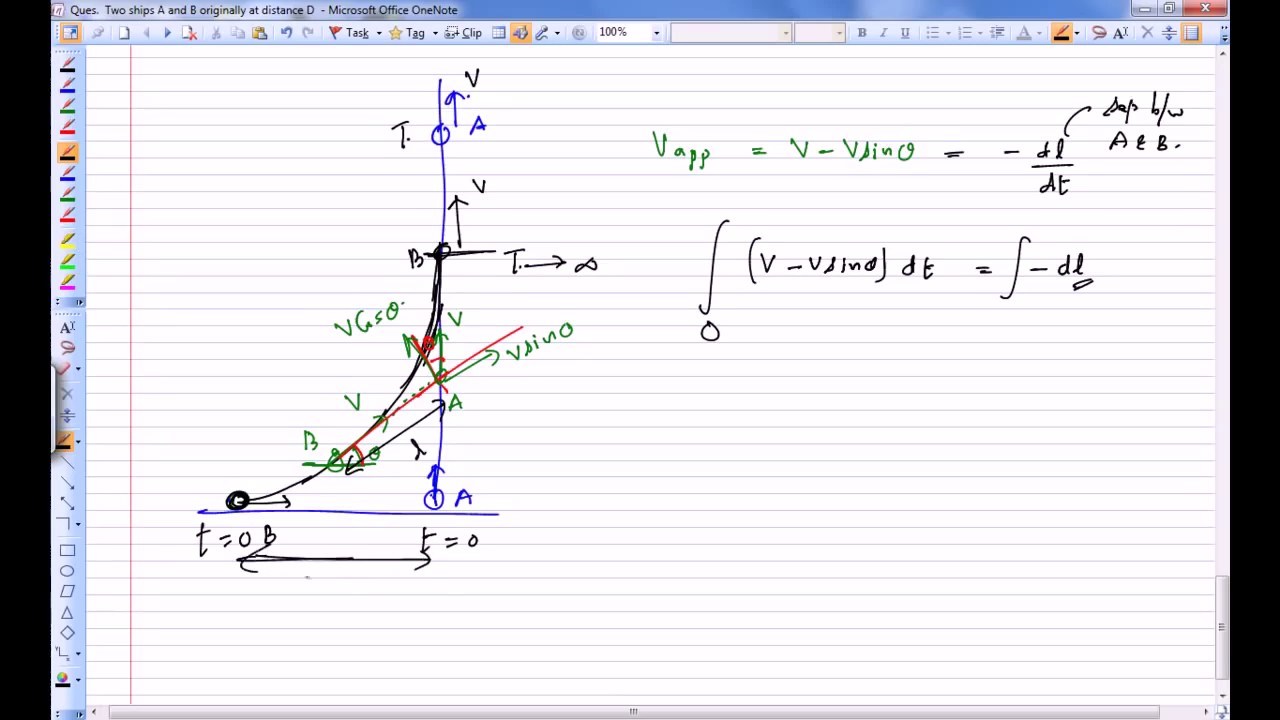 Ques. Two ships A and B originally at distance D - Microsoft Office OneNote
Task Tag Clip 100% B I U A
V
T. A
V
B T. → ∞
V cosθ V V sinθ
V A
B θ l
A
t = 0 B t = 0
V app = V - V sinθ = - dl/dt
sep b/w
A & B.
∫ (V - V sinθ) dt = ∫ - dl
0